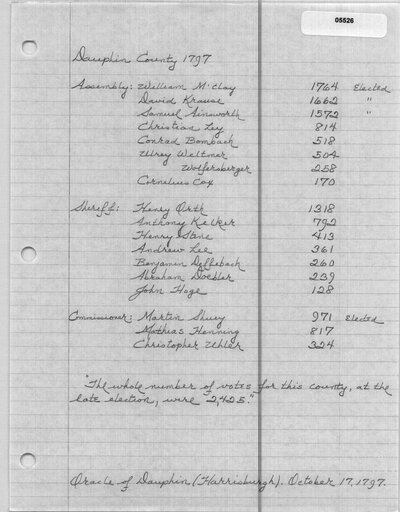 05526
Dauphin County 1797
Assembly: William McClay 1764 Elected
David Krause 1662 "
Samuel Ainsworth 1572 "
Christian Ley 814
Conrad Bombach 518
Ulrey Weltmer 504
Wolfersberger 258
Cornelius Cox 170
Sheriff: Henry Orth 1318
Anthony Kelker 792
Henry Stene 413
Andrew Lee 361
Benjamin Deffebach 260
Abraham Doebler 239
John Hoge 128
Commissioner: Martin Shuey 971 Elected
Mathias Henning 817
Christopher Uhler 324
"The whole number of votes for this county, at the
late election, were 2,425."
Oracle of Dauphin (Harrisburgh). October 17, 1797.